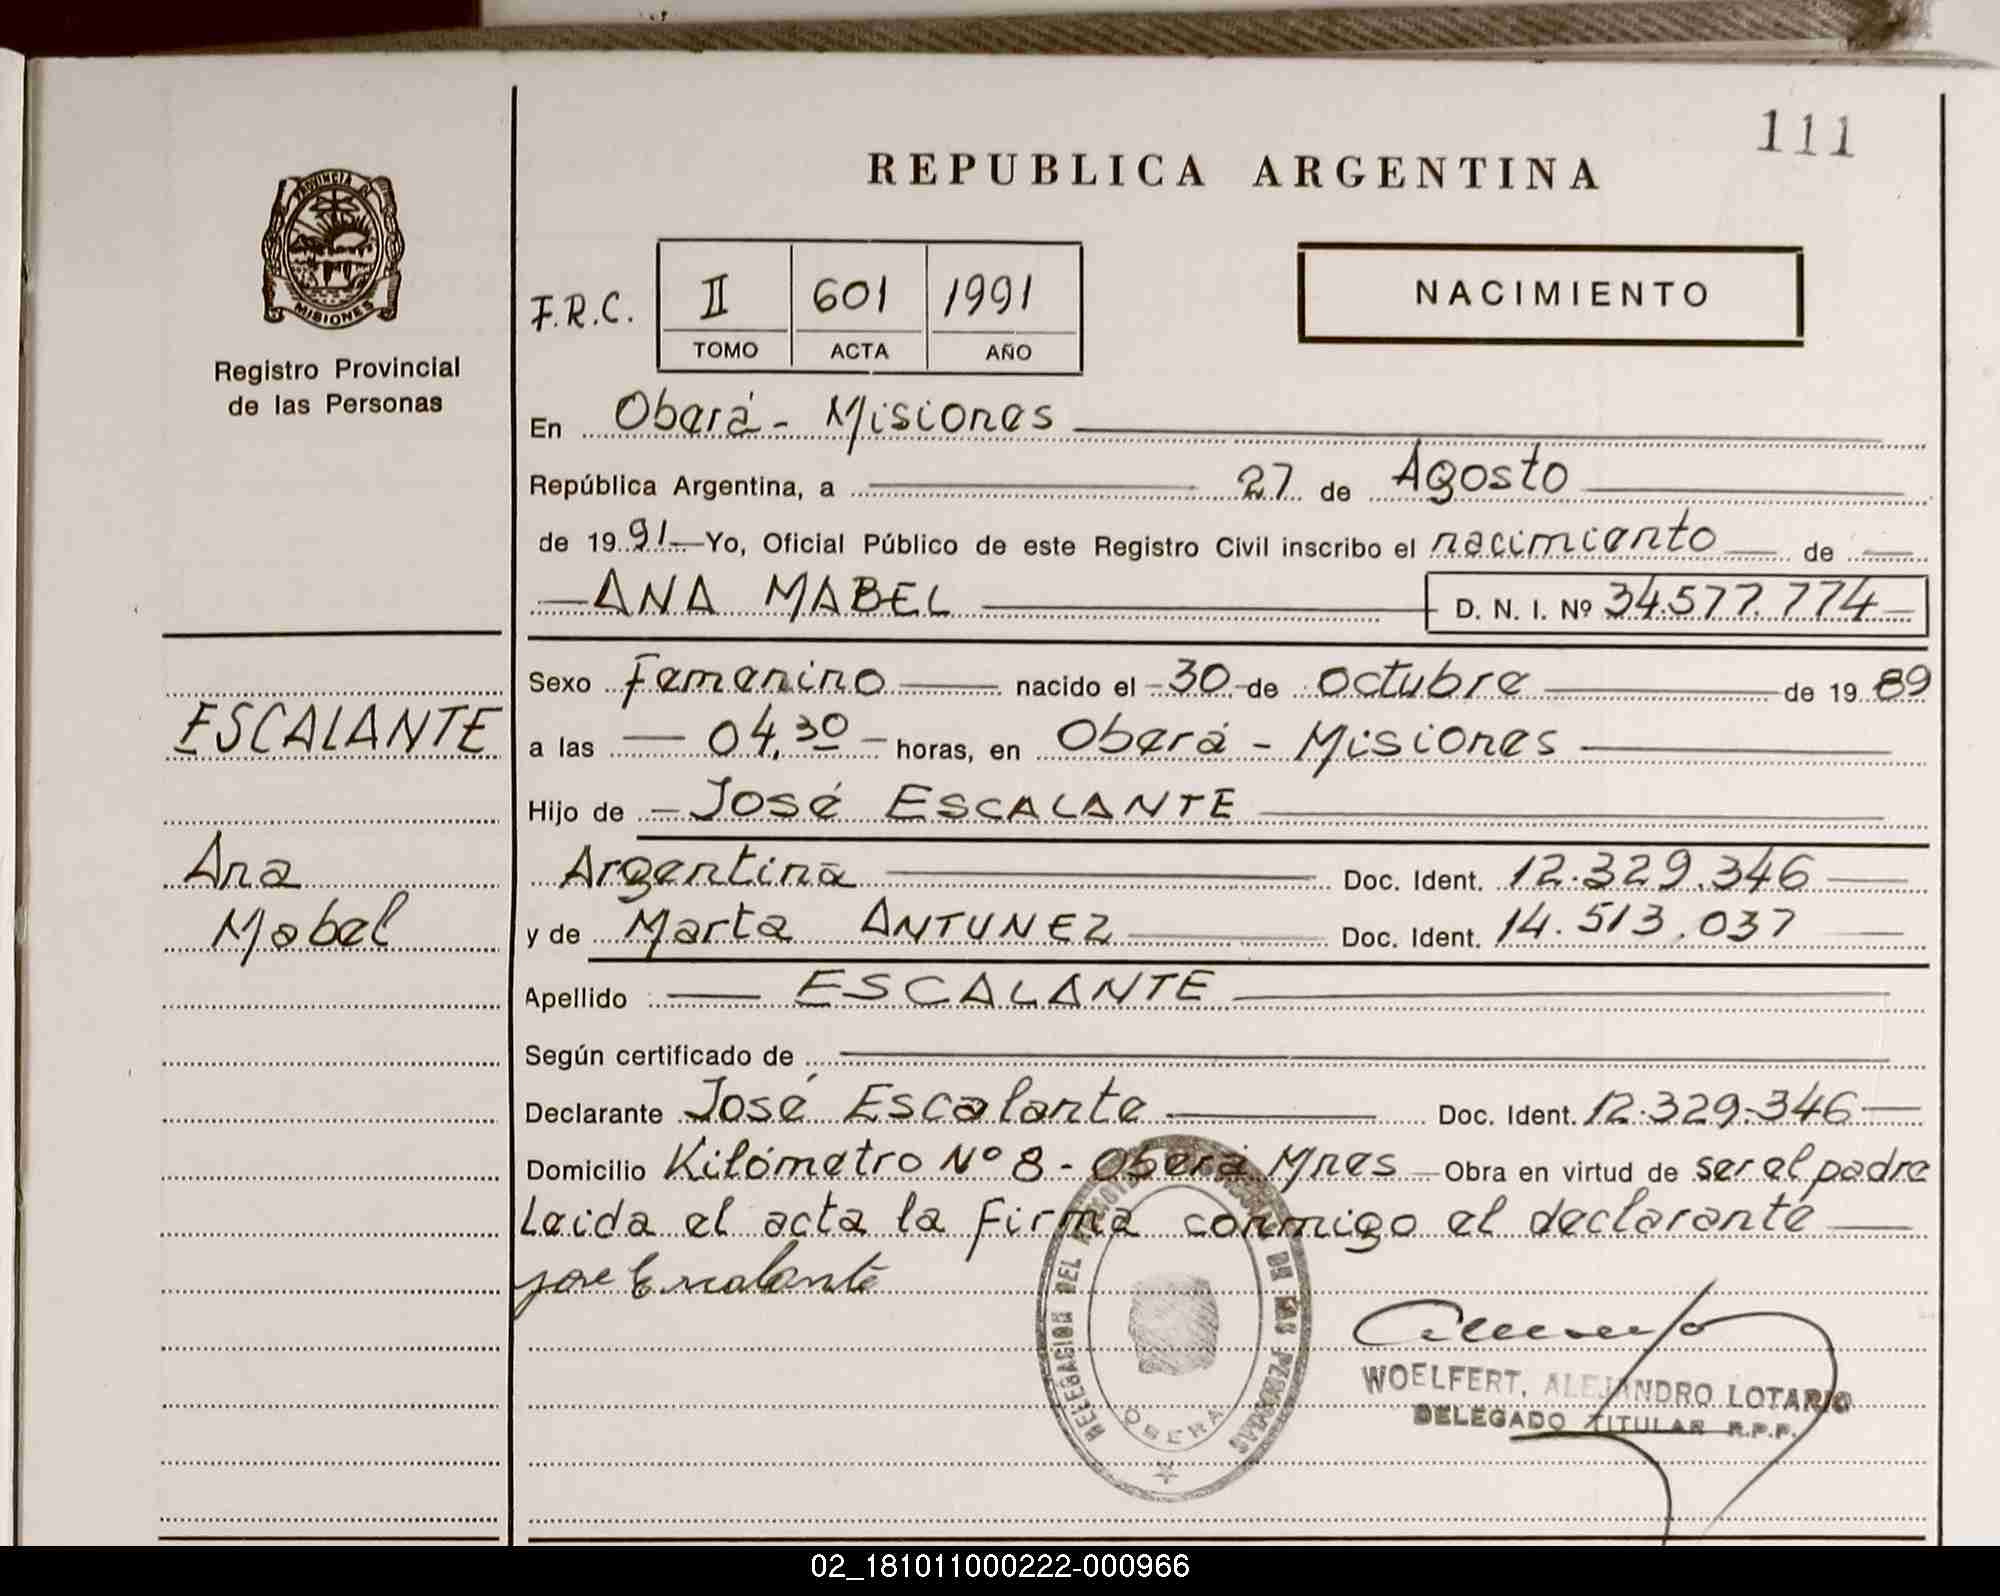 111
REPUBLICA ARGENTINA
PROVINCIA DE
MISIONES
Registro Provincial
de las Personas
F.R.C.
II 601 1991
TOMO ACTA AÑO
NACIMIENTO
En Oberá - Misiones
República Argentina, a 27 de Agosto
de 1991 Yo, Oficial Público de este Registro Civil inscribo el nacimiento de
ANA MABEL D. N. I. Nº 34.577.774
Sexo Femenino nacido el 30 de octubre de 1989
ESCALANTE
a las 04,30 horas, en Oberá - Misiones
Hijo de José ESCALANTE
Ana
Argentina Doc. Ident. 12.329.346
Mabel
y de Marta ANTUNEZ Doc. Ident. 14.513.037
Apellido ESCALANTE
Según certificado de
Declarante José Escalante Doc. Ident. 12.329.346
Domicilio Kilómetro Nº 8 - Oberá Mnes Obra en virtud de ser el padre
Leida el acta la firma conmigo el declarante
Jose Escalante
DELEGACION DEL REGISTRO PROVINCIAL DE LAS PERSONAS
OBERA
WOELFERT, ALEJANDRO LOTARIO
DELEGADO TITULAR R.P.P.
02_181011000222-000966